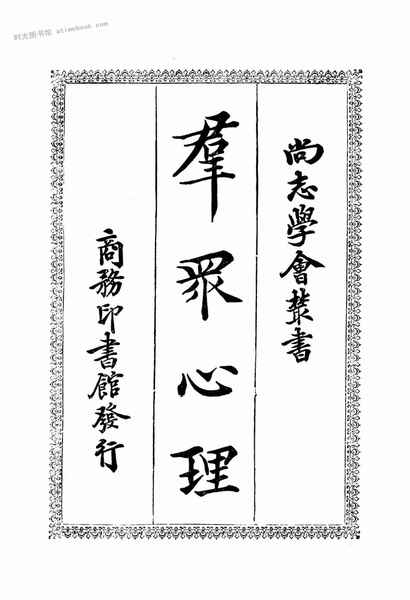 时光图书馆 atimebook.com
尚志學會叢書
羣眾心理
商務印書館發行